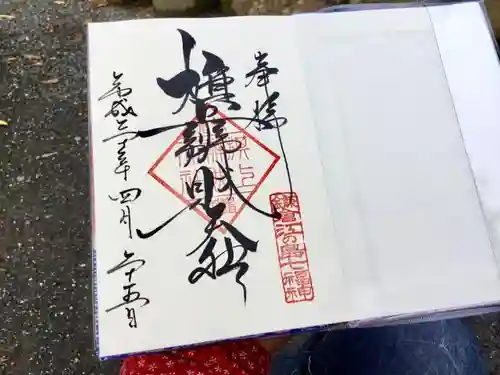 奉拝
旗上辨財天社
鎌倉江の島七福神
平成三十年四月二十五日